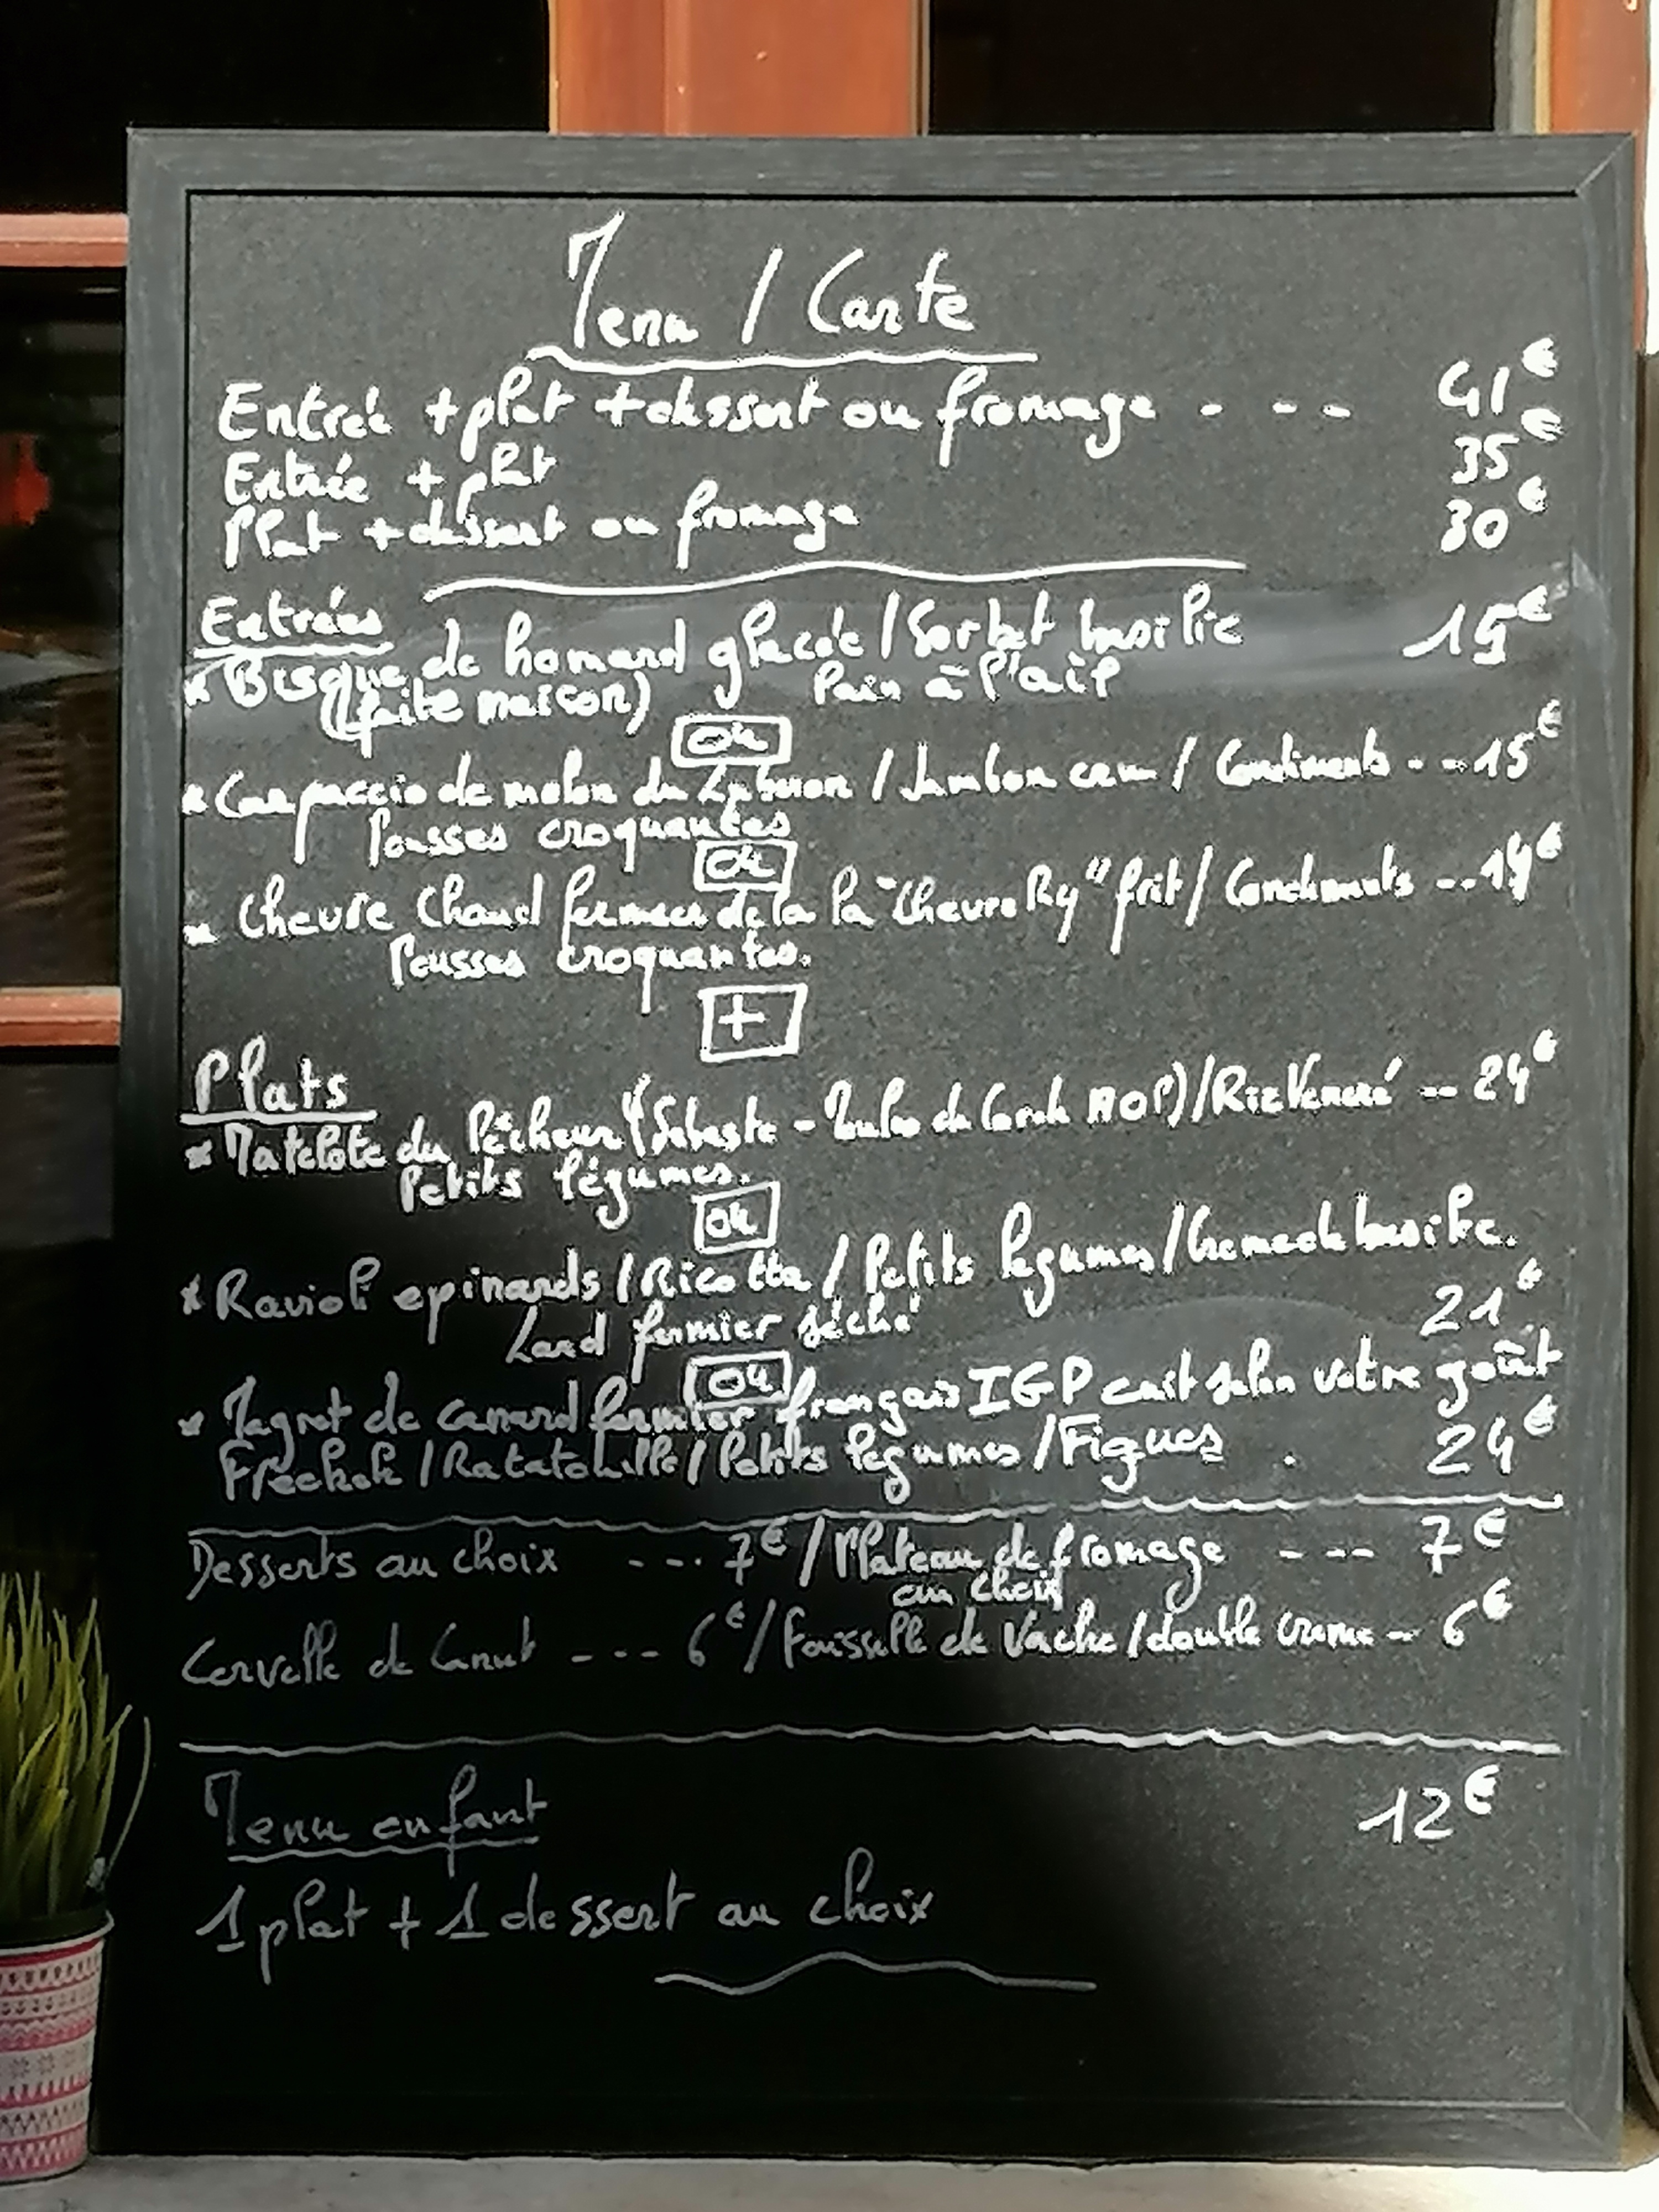 Menu / Carte
Entrée + plat + dessert ou fromage - - - 41€
Entrée + plat 35€
Plat + dessert ou fromage 30€
Entrées
* Bisque de homard glacée / Sorbet basilic 15€
(faite maison) Pain à l'ail
ou
* Carpaccio de melon du Luberon / Jambon cru / Condiments - - 15€
Pousses croquantes
ou
* Chèvre Chaud fermier de la "Chèvre Ry" frit / Condiments - - 14€
Pousses croquantes.
+
Plats
* Matelote du Pêcheur (Sébaste - Moules de Bouchot AOP) / Riz Vénéré -- 24€
Petits légumes.
ou
* Ravioli epinards / Ricotta / Petits légumes / Crème de basilic.
Lard fermier séché 21€
ou
* Magret de canard fermier français IGP cuit selon votre goût
Freekeh / Ratatouille / Petits légumes / Figues . 24€
Desserts au choix - - - 7€ / Plateau de fromage - - - 7€
au choix
Cervelle de Canut - - - 6€ / Faisselle de Vache / double crème - 6€
Menu enfant 12€
1 plat + 1 dessert au choix